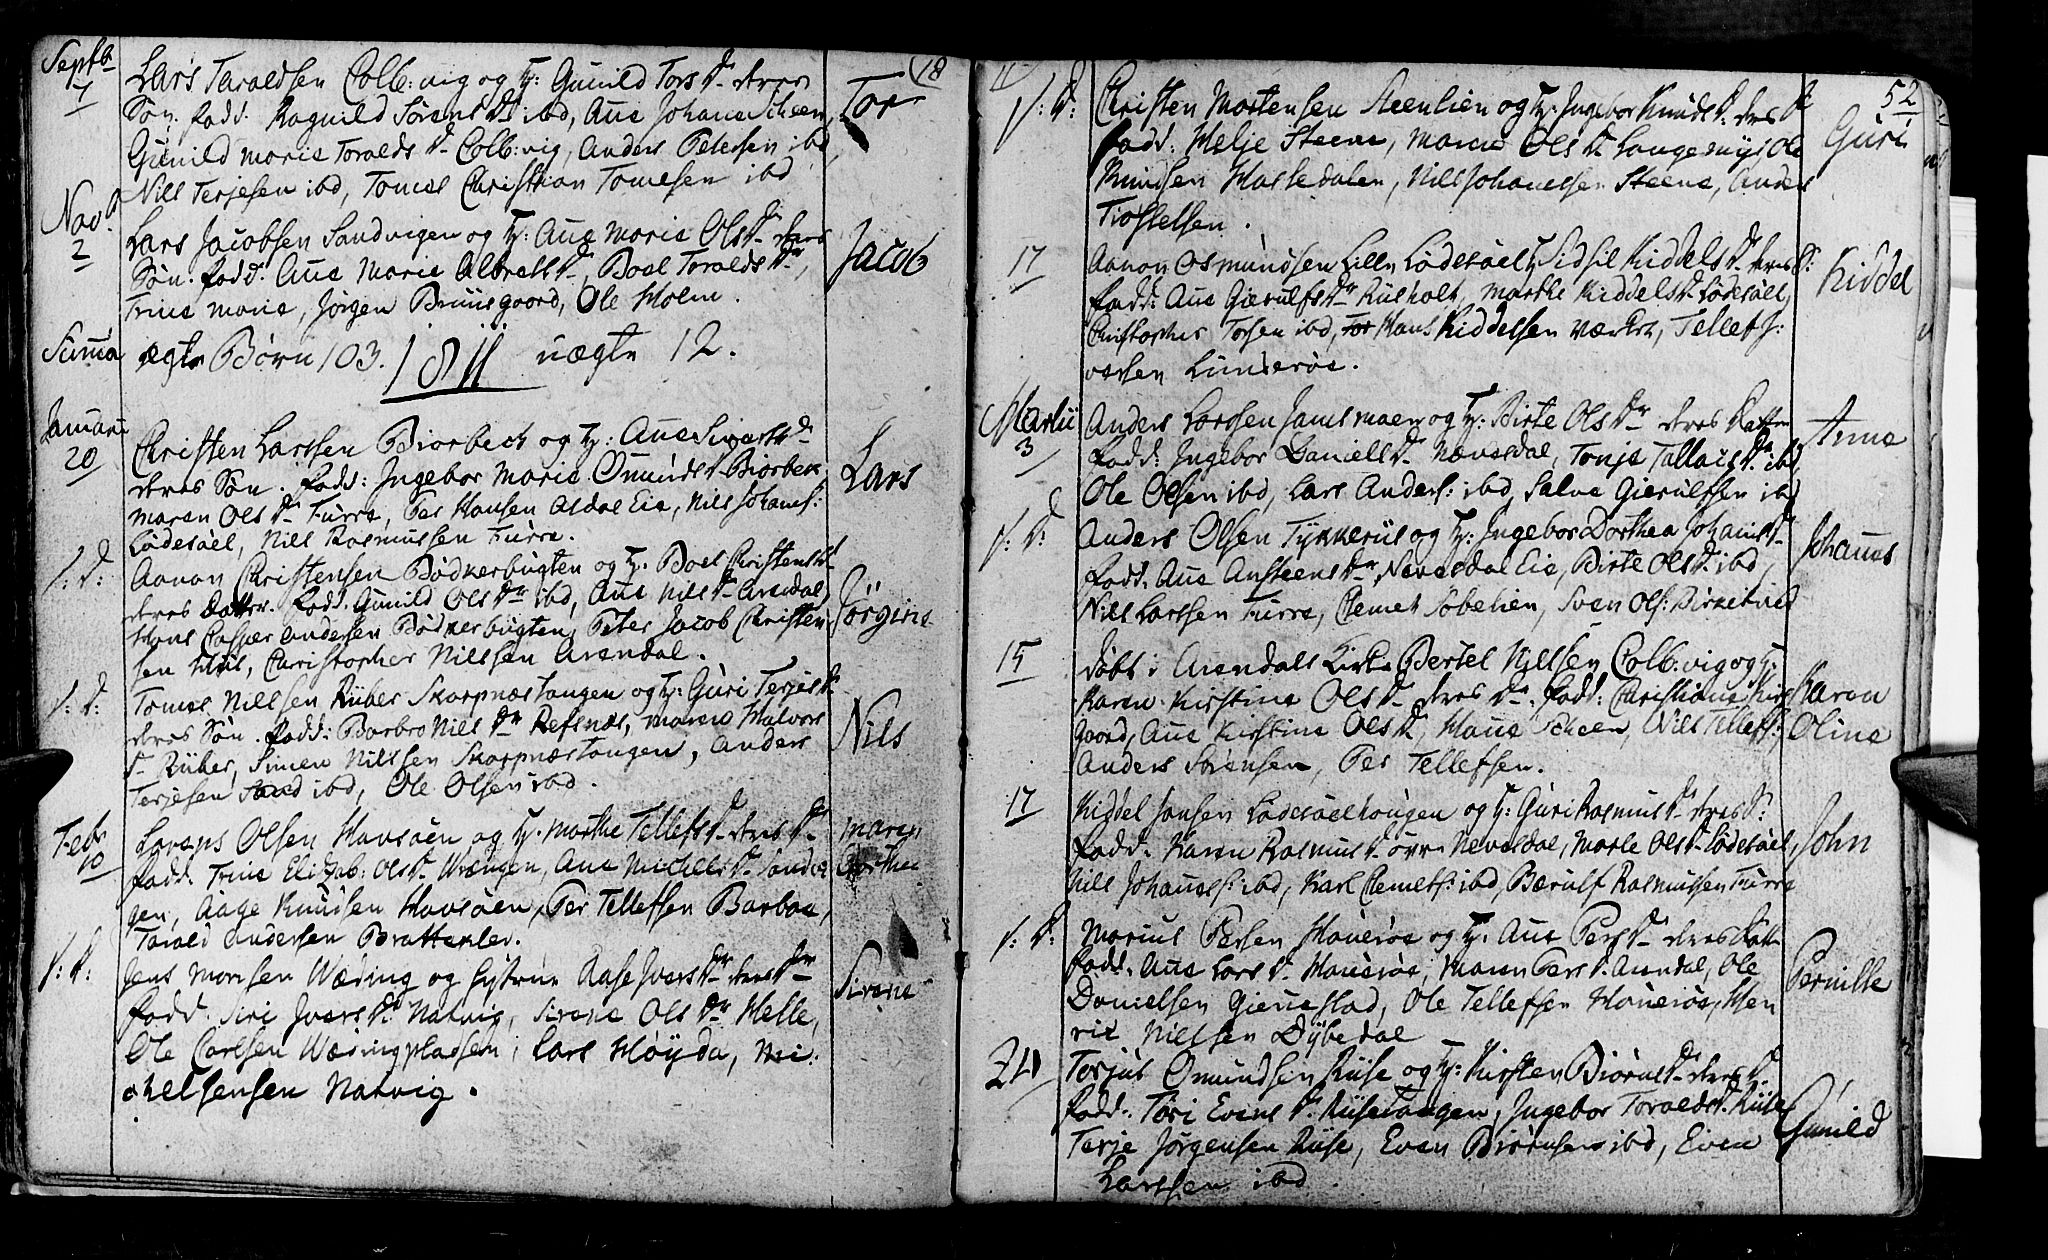 Septb. 7
Lars Taraldsen Colb:vig og H: Gunild Tors D. deres
Søn. fadd. Ragnild Sørens D. ibd, Ane Johans Scheen,
Gunild Marie Toralds D. Colb:vig, Anders Petersen ibd
Nils Terjesen ibd, Tomas Christian Tomesen ibd
Tor
Nov. 2
Lars Jacobsen Sandvigen og H: Ane Marie Ols D. deres
Søn. fadd. Ane Marie Albretts D., Boel Toralds D.,
Trine Marie, Jørgen Bruusgaard, Ole Holm.
Jacob
Suma ægte Børn 103. uægte 12.
1811
Januarii 20
Christen Larssen Biorbeck og H: Ane Sivarts D.
deres Søn. fadd: Ingebor Marie Omunds D. Biorbek
Maren Ols D. Furre, Per Hansen Asdal Eie, Nils Johans:
Lødesøel, Nils Rasmussen Furre.
Lars
s: D:
Aanon Christensen Bødkerbugten og H. Boel Christens D.
deres Datter. fadd. Gunild Ols D. ibd, Ane Nils D. Arendal,
Hans Casper Andersen Bødkerbugten, Peter Jacob Christen
sen Hiis, Christopher Nilssen Arendal.
Jørgine
s: D:
Tomas Nilssen Ruber Skarpnæstangen og H: Guri Terjes D.
deres Søn. fadd: Barbro Nils D. Refsnæs, Maren Halvors
D. Ruber, Simen Nilssen Skarpnæstangen, Anders
Terjesen Sand ibd, Ole Olsen ibd.
Nils
Febr 10
Olsen Havsøen og H. Marthe Tellefs D. deres D.
fadd. Trine Elizab: Ols D. Wrængen, Ane Michels D. Sandvi
gen, Aage Knudsen Havsøen, Per Tellefsen Barboe,
Torald Andersen Brattekler.
Maren
s: D:
Jens Monsen Wæding og Hustrue Aase Ivers D. deres D.
fadd. Siri Ivers D. Natvig, Sirene Ols D. Helle,
Ole Carlsen Wædingpladsen, Lars Høyda, Mi
chelsensen Natvig.
Sirene
18
52
s: D:
Christen Mortensen Steenlien og H: Ingebor Knuds D. deres D.
fadd: Helje Steene, Maren Ols D. Langemyr, Ole
Knudsen Hasledalen, Nils Johannesen Steene, Anders
Tiostelsen.
Guri
17
Aanon Osmundsen Lille Lødesøel, H. Sidsil Kiddels D. deres S:
fadd: Ane Gierulfs D. Rusholt, Marthe Kiddels D. Lødesøel,
Christopher Torsen ibd, Hans Kiddelsen Værket, Tellef J:
versen Lunderøe.
Kiddel
Martii 3
Anders Larssen Jamsmaen og H: Birte Ols D. deres Datter
fadd: Ingebor Daniels D. Nævesdal, Tonje Tallais D. ibd
Ole Olsen ibd, Lars Anders: ibd, Salve Gierulfsen ibd
Anna
s: D:
Anders Olsen Tykkerus og H: Ingebor Dorthea Johans D.
fadd. Ane Ansteens D., Nævesdal Eie, Birte Ols D. ibd,
Nils Larssen Furre, Clemet Søbelien, Sven Ols: Birketved
Johannes
15
døbt i Arendals Kirke Bertel Nilssen Colb:vig og H:
Karen Kirstine Ols D. deres D. fadd: Christiane Kirs
Gaard, Ane Kirstine Ols D, Hane Scheen, Nils Tellefs:,
Anders Sørensen, Per Tellefsen.
Karen
Oline
17
Kiddel Jansen Lødesøelhougen og H: Guri Rasmus D. deres S:
fadd. Karen Rasmus D. øvre Nevesdal, Marie Ols D. Lødesøel,
Nils Johaness: ibd, Karl Clemets: ibd, Bærulf Rasmussen Furre
John
s: D:
Marius Persen Hanerøe og H: Ane Pers D. deres Datt.
fadd. Ane Lars D. Hanerøe, Maren Pers D. Arendal, Ole
Danielsen Gieruestad, Ole Tellefsen Hanerøe, Hen
ric Nilssen Dybedal
Pernille
24
Torjus Omundsen Riise og H: Kirsten Biørns D. deres D.
fadd: Tori Evens D. Riisetangen, Ingebor Toralds D. Riise
Terje Jørgensen Riise, Even Biørnsen ibd, Even
Larssen ibd.
Gunild